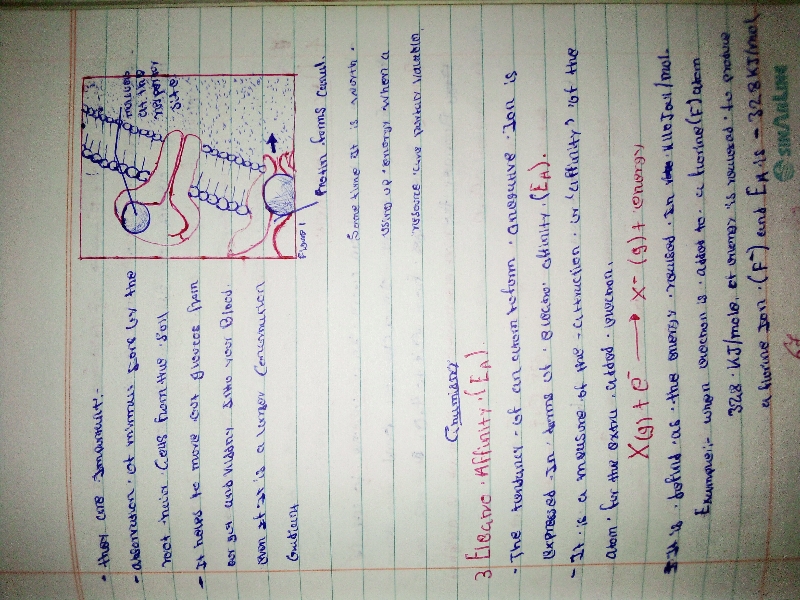 - they are Important:-
- absorption of minrus ions by the
root hair Cells from the Soil
- It helps to move out glucose from
or gut and kidny Into your Blood.
even if It is a larger Concentration
Gradient
molecule
at the
site
Figure 1
Protin forms Canal.
Some time it is worth.
using up energy when a
resource
Chumistry
3 Electro Affinity (EA).
- The tendancy of an atom to form anegative Ion is
expressed In terms of electro affinity (EA).
- It is a measure of the attraction or 'affinity' of the
atom for the extra added electron.
X(g) + e⁻ → X⁻(g) + energy
It is defind as the energy In KiloJoul/mol.
Example:- when electron is added to a florine (F) atom
328 KJ/mole of energy is to produce
a florine Ion (F⁻) and EA is - 328 KJ/mol
67
SINARLINE